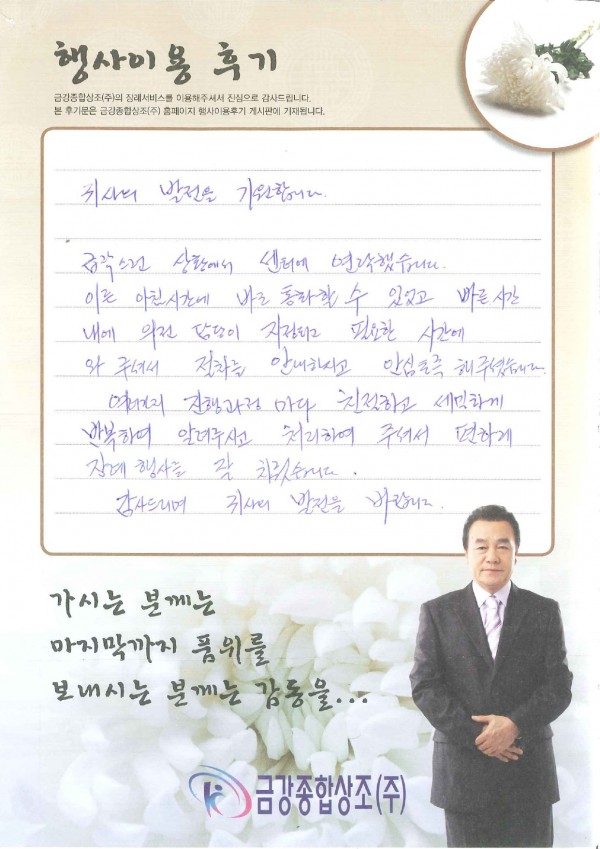 행사이용 후기
금강종합상조(주)의 장례서비스를 이용해주셔서 진심으로 감사드립니다.
본 후기문은 금강종합상조(주) 홈페이지 행사이용후기 게시판에 기재됩니다.
귀사의 발전을 기원합니다.
급작스런 상황에서 센터에 연락했습니다.
이른 아침시간에 바로 통화할 수 있었고 빠른 시간
내에 의전 담당이 지정되고 필요한 시간에
와 주셔서 절차를 안내하시고 안심토록 해주셨습니다.
여러가지 진행과정 마다 친절하고 세밀하게
반복하여 알려주시고 처리하여 주셔서 편하게
장례 행사를 잘 치뤘습니다.
감사드리며 귀사의 발전을 바랍니다.
가시는 분께는
마지막까지 품위를
보내시는 분께는 감동을...
금강종합상조(주)